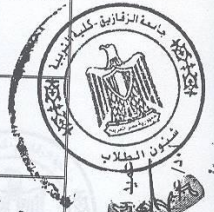 جامعة الزقازيق - كلية التربية
جمهورية مصر العربية
شئون الطلاب